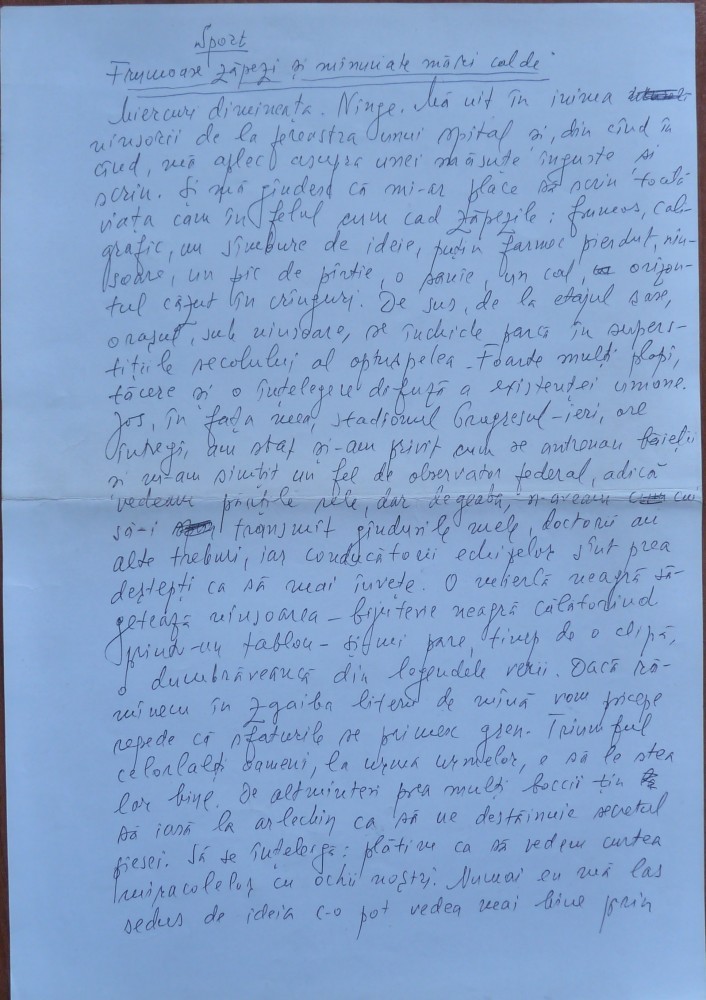 Sport
Frumoase zăpezi și minunate mări calde
Miercuri dimineața. Ninge. Mă uit în inima
ninsorii de la fereastra unui spital și, din cînd în
cînd, mă aplec asupra unei măsuțe înguste și
scriu. Și mă gîndesc că mi-ar place să scriu toată
viața cam în felul cum cad zăpezile: frumos, cali-
grafic, un sîmbure de ideie, puțin farmec pierdut, nin-
soare, un pic de pîrtie, o sanie, un cal, orizon-
tul căzut în crînguri. De sus, de la etajul șase,
orașul, sub ninsoare, se închide parcă în supers-
tițiile secolului al optsprelea. Foarte mulți plopi,
tăcere și o înțelegere difuză a existenței umane.
Jos, în fața mea, stadionul Progresul - ieri, ore
întregi, am stat și-am privit cum se antrenau băieții
și m-am simțit un fel de observator federal, adică
vedeam părțile rele, dar degeaba, n-aveam cui
să-i transmit gîndurile mele, doctorii au
alte treburi, iar conducătorii echipelor sînt prea
deștepți ca să mai învețe. O mierlă neagră să-
getează ninsoarea - bijuterie neagră călătorind
printr-un tablou - și-mi pare, timp de o clipă,
o dumbrăveancă din legendele verii. Dacă ră-
mînem în zgaiba literei de mînă vom pricepe
repede că sfaturile se primesc greu. Triumful
celorlalți oameni, la urma urmelor, o să le stea
lor bine. De altminteri prea mulți boccii țin
să iasă la arlechin ca să ne destăinuie secretul
piesei. Să se înțeleagă: plătim ca să vedem curtea
miracolelor cu ochii noștri. Numai eu mă las
sedus de ideia c-o pot vedea mai bine prin